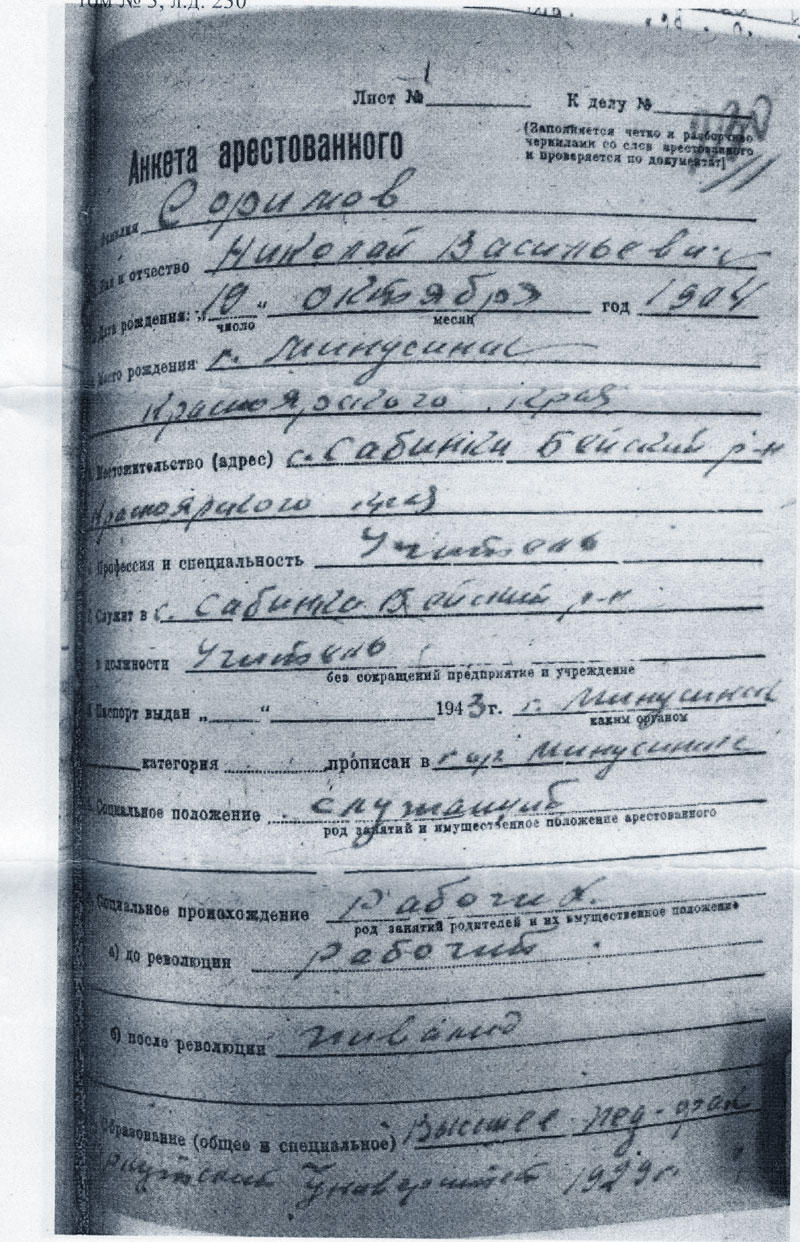 Том № 3, л.д. 230
Лист № 1 К делу №
Анкета арестованного
(Заполняется четко и разборчиво
чернилами со слов арестованного
и проверяется по документам)
Фамилия
Имя и отчество Николай Васильевич
Дата рождения: „19“ октября год 1904
число месяц
Место рождения г. Минусинск
Красноярского края
Местожительство (адрес) с. Сабинки Бейский р-н
Красноярского края
Профессия и специальность Учитель
Служит в с. Сабинка Бейский р-н
в должности Учитель
без сокращений предприятие и учреждение
Паспорт выдан „ “ 1943 г. г. Минусинск
каким органом
категория прописан в гор. Минусинске
Социальное положение служащий
род занятий и имущественное положение арестованного
Социальное происхождение Рабочий
род занятий родителей и их имущественное положение
а) до революции рабочий
б) после революции
Образование (общее и специальное) Высшее пед-фак
Университет 1929 г.